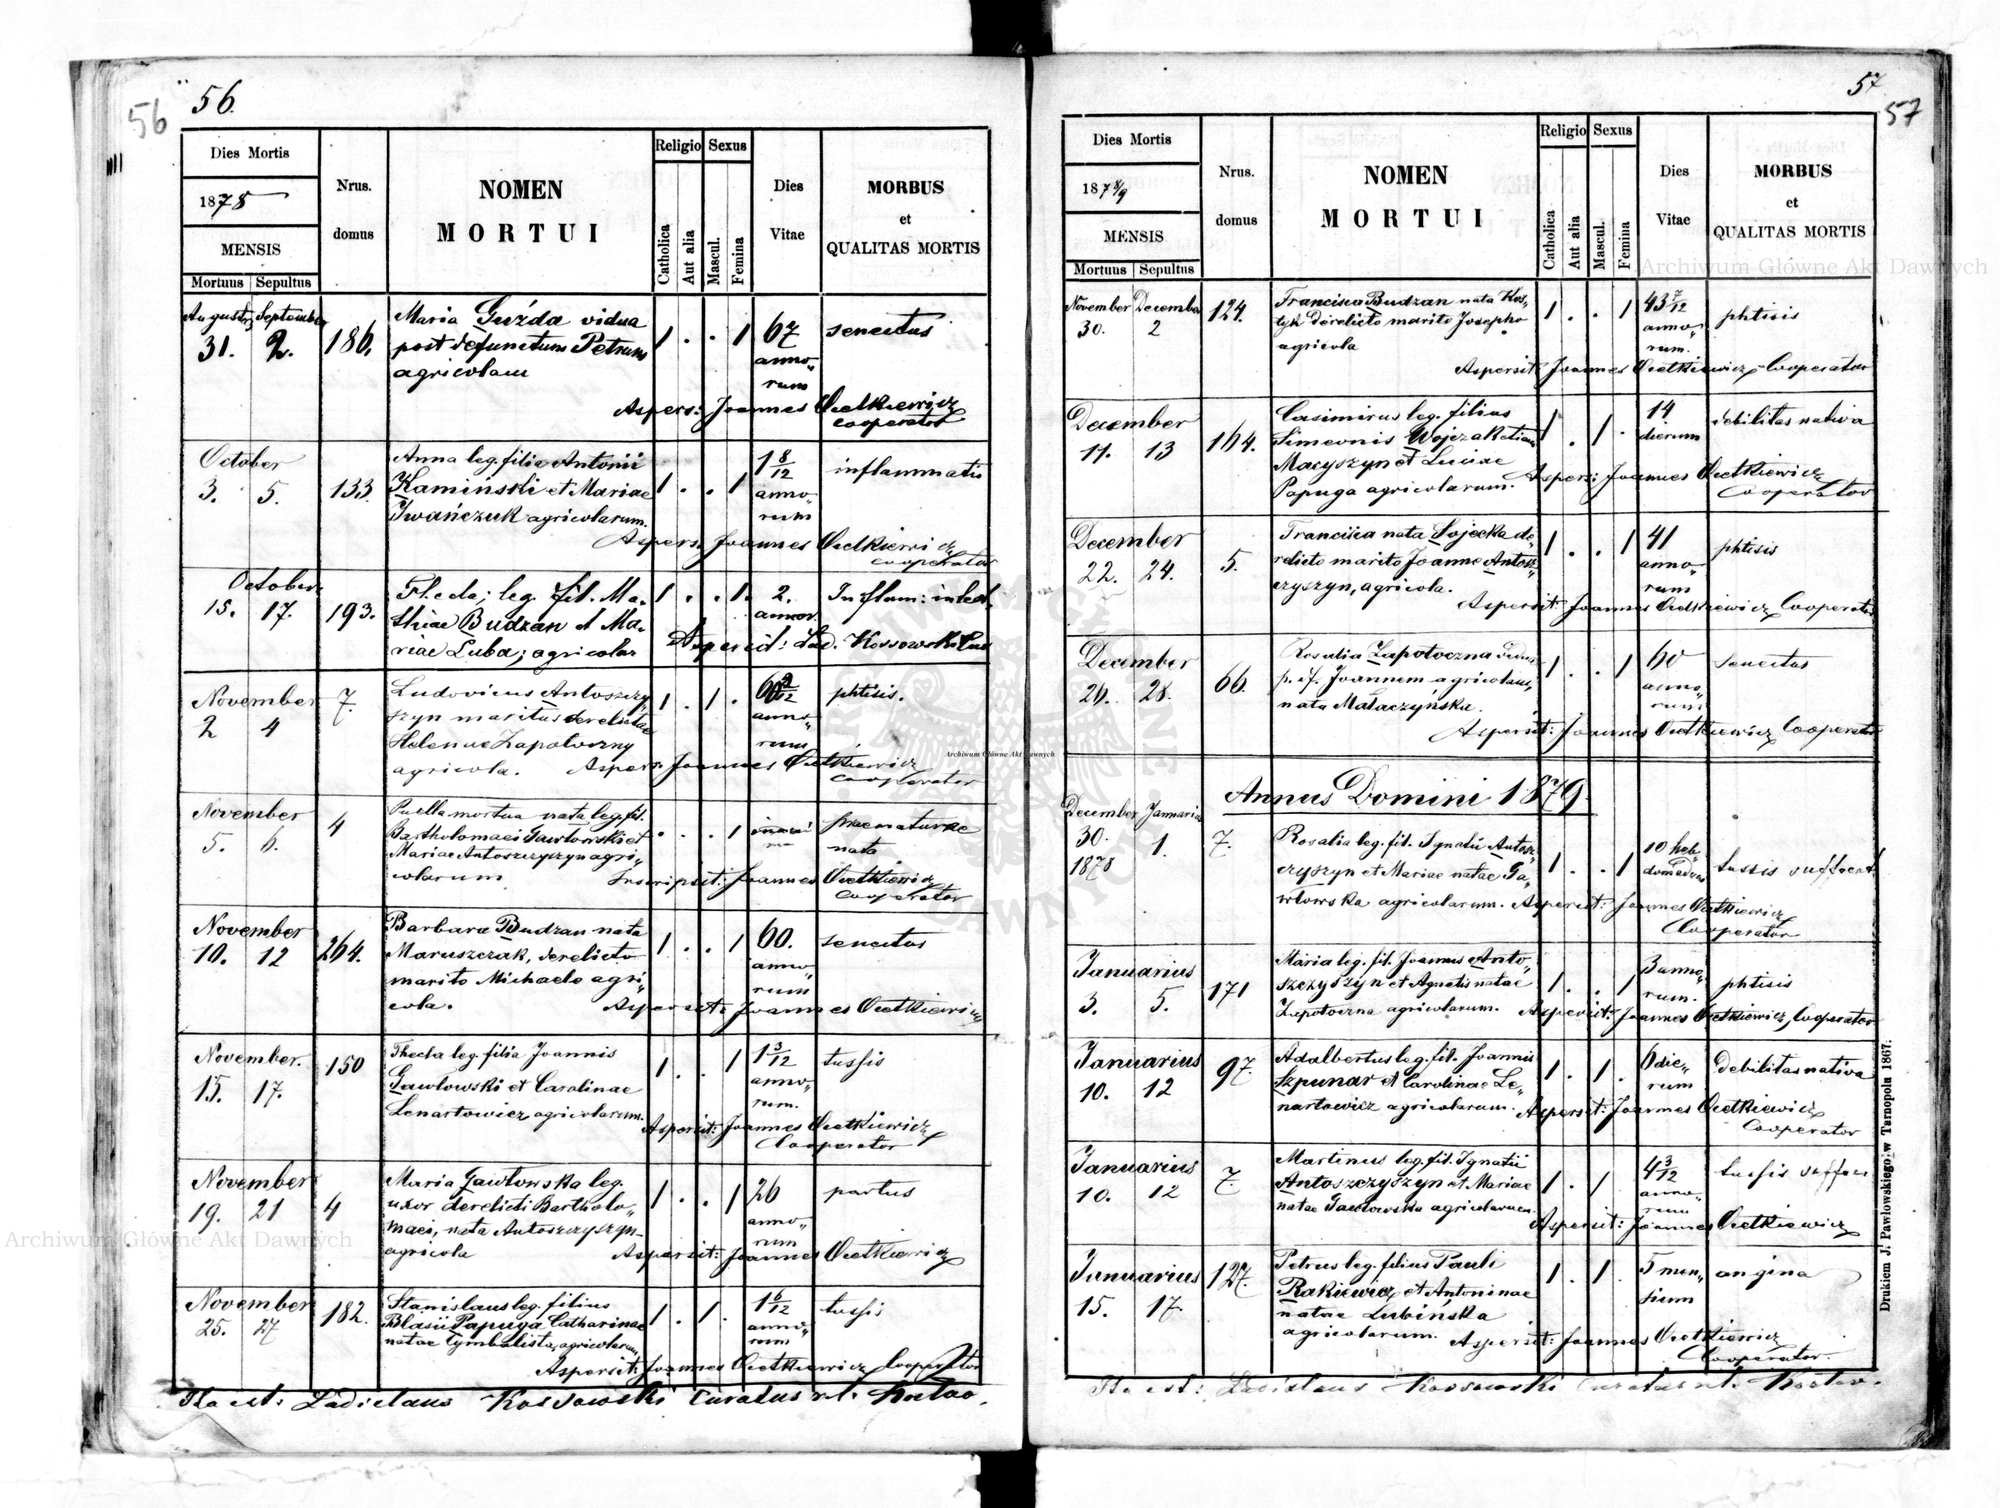 56
56.
Dies Mortis
1878
MENSIS
Mortuus Sepultus
Nrus. domus
NOMEN
MORTUI
Religio
Catholica
Aut alia
Sexus
Mascul.
Femina
Dies Vitae
MORBUS
et
QUALITAS MORTIS
Augusti Septembe
31. 2. 186.
Maria Guźda vidua
post defunctum Petrum
agricolam
1 . . 1 67 senectus
anno„
rum
Aspers: Joannes Orelkiewicz
cooperator
October
3. 5. 133.
Anna leg. filia Antonii
Kamiński et Mariae
Iwańczuk agricolarum.
1 . . 1 1 8/12 inflammatio
anno„
rum
Aspers. Joannes
cooperator
October
15. 17. 193.
Thecla; leg. fil. Ma„
thiae Budzan et Ma„
riae Luba; agricolar
1 . . 1. 2.
annor.
Inflam:
Aspersit: Lad. Kossowski
November
2 4 7.
Ludovicus Antoszczy„
szyn maritus derelictae
Helenae Zapotoczny
agricola.
1 . 1 . phtisis.
anno„
rum
Aspers: Joannes
cooperator
November
5. 6. 4
Puella mortua nata leg. fil.
Bartholomaei Gawłowski et
Mariae Antoszczyszyn agri„
colarum
. . . 1
praemature
nata
Inscripsit: Joannes
cooperator
November
10. 12 264.
Barbara Budzan nata
Maruszczak, derelicto
marito Michaele agri„
cola.
1 . . 1 60. senectus
anno„
rum
Aspersit: Joannes
November.
15. 17. 150
Thecla leg. filia Joannis
Gawłowski et Carolinae
Lenartowicz agricolarum.
1 . . 1 1 3/12 tussis
anno„
rum.
Aspersit: Joannes
Cooperator
November
19. 21 4
Maria Gawłowska leg.
uxor derelicti Bartholo„
maei, nata Antoszczyszyn
agricola
1 . . 1 26 partus
anno„
rum
Aspersit: Joannes
November
25. 27 182.
Stanislaus leg. filius
Blasii Papuga Catharinae
natae Cymbalista, agricolarum
1 . 1 . 1 6/12 tussis
anno„
rum
Aspersit: Joannes Cooperator
Ita est: Ladislaus Kossowski Curatus r.l.
57
57
Dies Mortis
1878/9
MENSIS
Mortuus Sepultus
Nrus. domus
NOMEN
MORTUI
Religio
Catholica
Aut alia
Sexus
Mascul.
Femina
Dies Vitae
MORBUS
et
QUALITAS MORTIS
November December
30. 2 124.
Francisca Budzan nata Kos„
tyk derelicto marito Josepho
agricola
1 . . 1 43 7/12 phtisis
anno„
rum.
Aspersit: Joannes Cooperator
December
11. 13 164.
Casimirus leg. filius
Simeonis Wojczak etiam
Macyszyn et Luciae
Papuga agricolarum.
1 . 1 . 14 debilitas nativa
dierum
Aspers: Joannes
Cooperator
December
22. 24. 5.
Francisca nata Sojecka de„
relicto marito Joanne Antosz„
czyszyn, agricola.
1 . . 1 41 phtisis
anno„
rum
Aspersit: Joannes Cooperator
December
26. 28. 66.
Rosalia Zapotoczna vidua
p. def. Joannem agricolam,
nata Mataczyńska.
1 . . 1 60 senectus
anno„
rum
Aspersit: Joannes Cooperator
Annus Domini 1879.
December Januarius
30. 1. 7.
1878
Rosalia leg. fil. Ignatii Antosz„
czyszyn et Mariae natae Ga„
włowska agricolarum.
1 . . 1 10 heb„ tussis suffocat.
Aspersit: Joannes
Cooperator
Januarius
3. 5. 171
Maria leg. fil. Joannis Anto„
szczyszyn et Agnetis natae
Zapotoczna agricolarum.
1 . . 1 3 anno„ phtisis
rum.
Aspersit: Joannes Cooperator
Januarius
10. 12 97.
Adalbertus leg. fil. Joannis
Szpunar et Carolinae Le„
nartowicz agricolarum.
1 . 1 . 6 die„ debilitas nativa
rum
Aspersit: Joannes
Cooperator
Januarius
10. 12 7.
Martinus leg. fil. Ignatii
Antoszczyszyn et Mariae
natae Gawłowska agricolarum
1 . 1 4 3/12 tussis suffoc
anno„
rum
Aspersit: Joannes
Januarius
15. 17. 127.
Petrus leg. filius Pauli
Rakiewicz, et Antoninae
natae Lubińska
agricolarum.
1 . 1 . 5 men„ angina
sium
Aspersit: Joannes
Cooperator.
Ita est: Ladislaus Kossowski Curatus r.l.
Drukiem J. Pawłowskiego w Tarnopolu 1867.
Archiwum Główne Akt Dawnych
Archiwum Główne Akt Dawnych
Archiwum Główne Akt Dawnych
ARCHIWUM GŁÓWNE AKT DAWNYCH